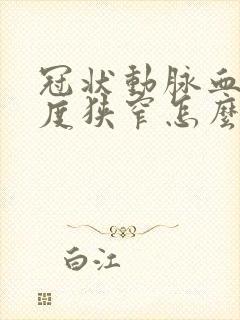 冠狀動脈血
度狹窄怎麼
白江